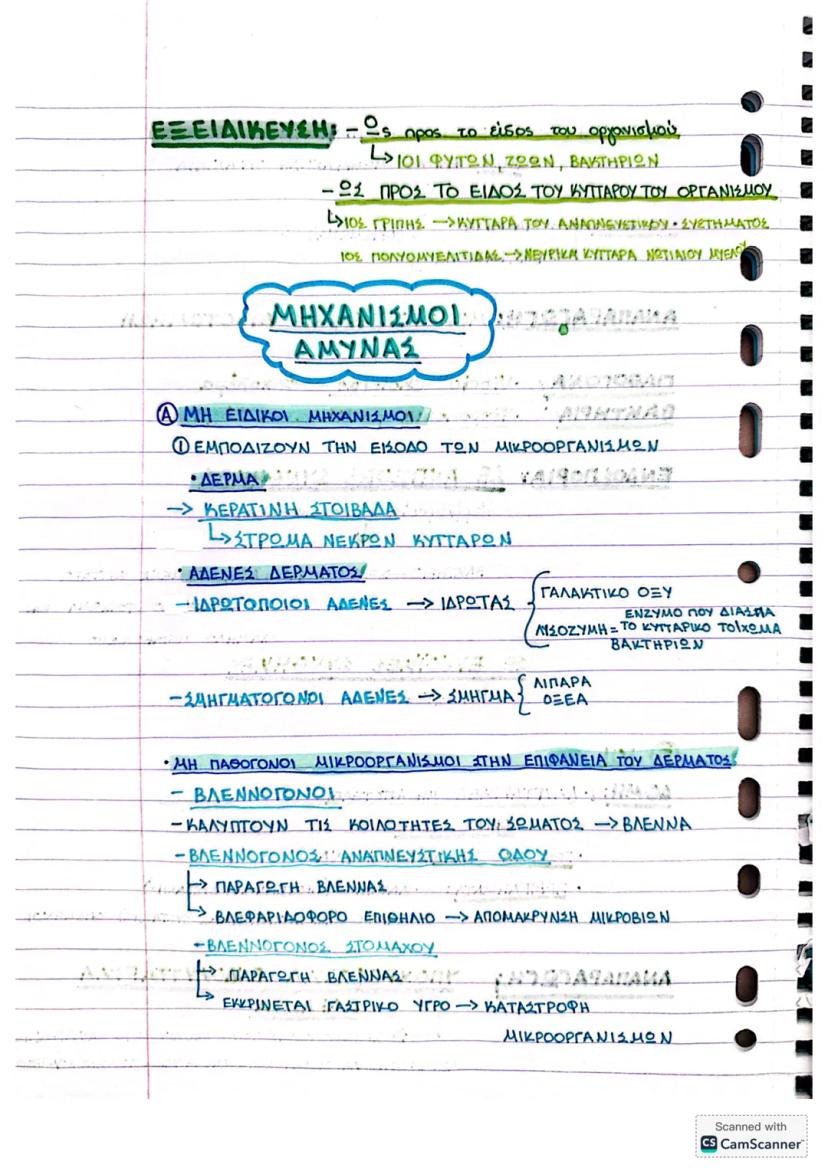 ΕΞΕΙΔΙΚΕΥΣΗ: - Ως προς το είδος του οργανισμού
↳ ΙΟΙ ΦΥΤΩΝ, ΖΩΩΝ, ΒΑΚΤΗΡΙΩΝ
- ΩΣ ΠΡΟΣ ΤΟ ΕΙΔΟΣ ΤΟΥ ΚΥΤΤΑΡΟΥ ΤΟΥ ΟΡΓΑΝΙΣΜΟΥ
↳ ΙΟΣ ΓΡΙΠΗΣ → ΚΥΤΤΑΡΑ ΤΟΥ ΑΝΑΠΝΕΥΣΤΙΚΟΥ ΣΥΣΤΗΜΑΤΟΣ
ΙΟΣ ΠΟΛΥΟΜΥΕΛΙΤΙΔΑΣ → ΝΕΥΡΙΚΑ ΚΥΤΤΑΡΑ ΝΩΤΙΑΙΟΥ ΜΥΕΛΟΥ
ΜΗΧΑΝΙΣΜΟΙ
ΑΜΥΝΑΣ
Ⓐ ΜΗ ΕΙΔΙΚΟΙ ΜΗΧΑΝΙΣΜΟΙ
① ΕΜΠΟΔΙΖΟΥΝ ΤΗΝ ΕΙΣΟΔΟ ΤΩΝ ΜΙΚΡΟΟΡΓΑΝΙΣΜΩΝ
• ΔΕΡΜΑ
→ ΚΕΡΑΤΙΝΗ ΣΤΟΙΒΑΔΑ
↳ ΣΤΡΩΜΑ ΝΕΚΡΩΝ ΚΥΤΤΑΡΩΝ
• ΑΔΕΝΕΣ ΔΕΡΜΑΤΟΣ
- ΙΔΡΩΤΟΠΟΙΟΙ ΑΔΕΝΕΣ → ΙΔΡΩΤΑΣ { ΓΑΛΑΚΤΙΚΟ ΟΞΥ
ΕΝΖΥΜΟ ΠΟΥ ΔΙΑΣΠΑ
ΛΙΣΟΖΥΜΗ = ΤΟ ΚΥΤΤΑΡΙΚΟ ΤΟΙΧΩΜΑ
ΒΑΚΤΗΡΙΩΝ
- ΣΜΗΓΜΑΤΟΓΟΝΟΙ ΑΔΕΝΕΣ → ΣΜΗΓΜΑ { ΛΙΠΑΡΑ
ΟΞΕΑ
• ΜΗ ΠΑΘΟΓΟΝΟΙ ΜΙΚΡΟΟΡΓΑΝΙΣΜΟΙ ΣΤΗΝ ΕΠΙΦΑΝΕΙΑ ΤΟΥ ΔΕΡΜΑΤΟΣ
- ΒΛΕΝΝΟΓΟΝΟΙ
- ΚΑΛΥΠΤΟΥΝ ΤΙΣ ΚΟΙΛΟΤΗΤΕΣ ΤΟΥ ΣΩΜΑΤΟΣ → ΒΛΕΝΝΑ
- ΒΛΕΝΝΟΓΟΝΟΣ ΑΝΑΠΝΕΥΣΤΙΚΗΣ ΟΔΟΥ
→ ΠΑΡΑΓΩΓΗ ΒΛΕΝΝΑΣ
→ ΒΛΕΦΑΡΙΔΟΦΟΡΟ ΕΠΙΘΗΛΙΟ → ΑΠΟΜΑΚΡΥΝΣΗ ΜΙΚΡΟΒΙΩΝ
- ΒΛΕΝΝΟΓΟΝΟΣ ΣΤΟΜΑΧΟΥ
→ ΠΑΡΑΓΩΓΗ ΒΛΕΝΝΑΣ
→ ΕΚΚΡΙΝΕΤΑΙ ΓΑΣΤΡΙΚΟ ΥΓΡΟ → ΚΑΤΑΣΤΡΟΦΗ
ΜΙΚΡΟΟΡΓΑΝΙΣΜΩΝ
Scanned with
CS CamScanner